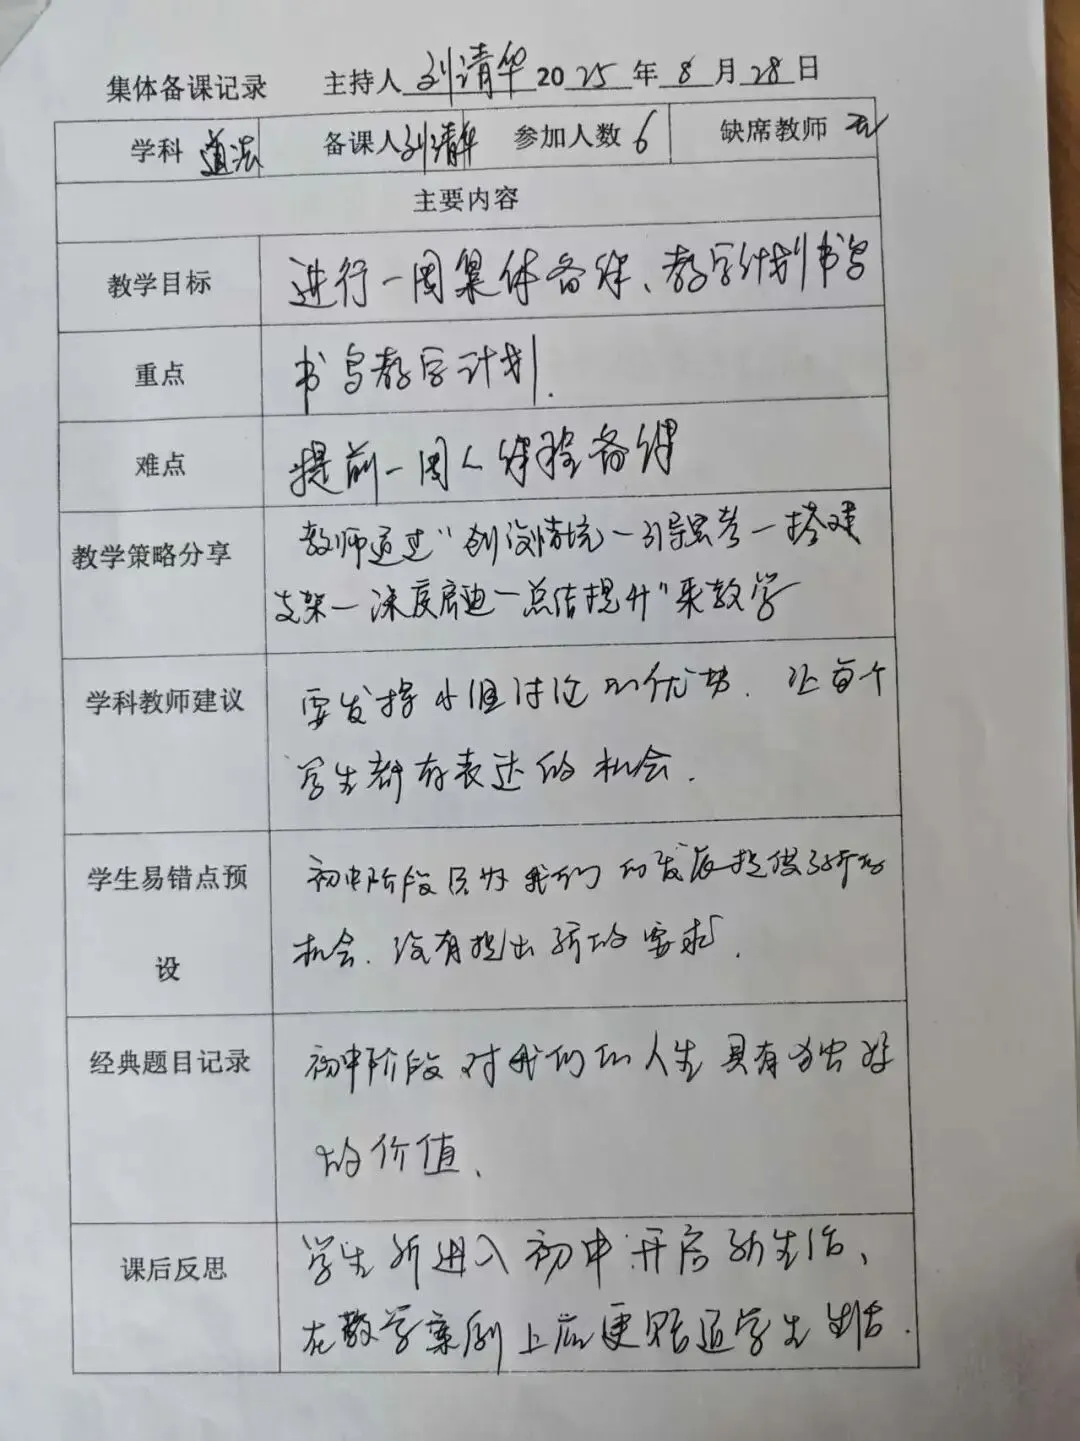 集体备课记录 主持人 刘清华 2025 年 8 月 28 日
学科 道法 备课人 刘清华 参加人数 6 缺席教师 无
主要内容
教学目标 进行一周集体备课、教学计划书写
重点 书写教学计划.
难点 提前一周人课程备课
教学策略分享 教师通过"创设情境—引导思考—搭建
支架—深度启迪—总结提升"来教学
学科教师建议 要发挥小组讨论的优势. 让每个
学生都有表达的机会.
学生易错点预 初中阶段只为我们的发展提供了新的
设 机会. 没有提出新的要求.
经典题目记录 初中阶段对我们的人生具有
的价值、
课后反思 学生新进入初中开启新生活、
在教学案例上应更贴近学生生活.